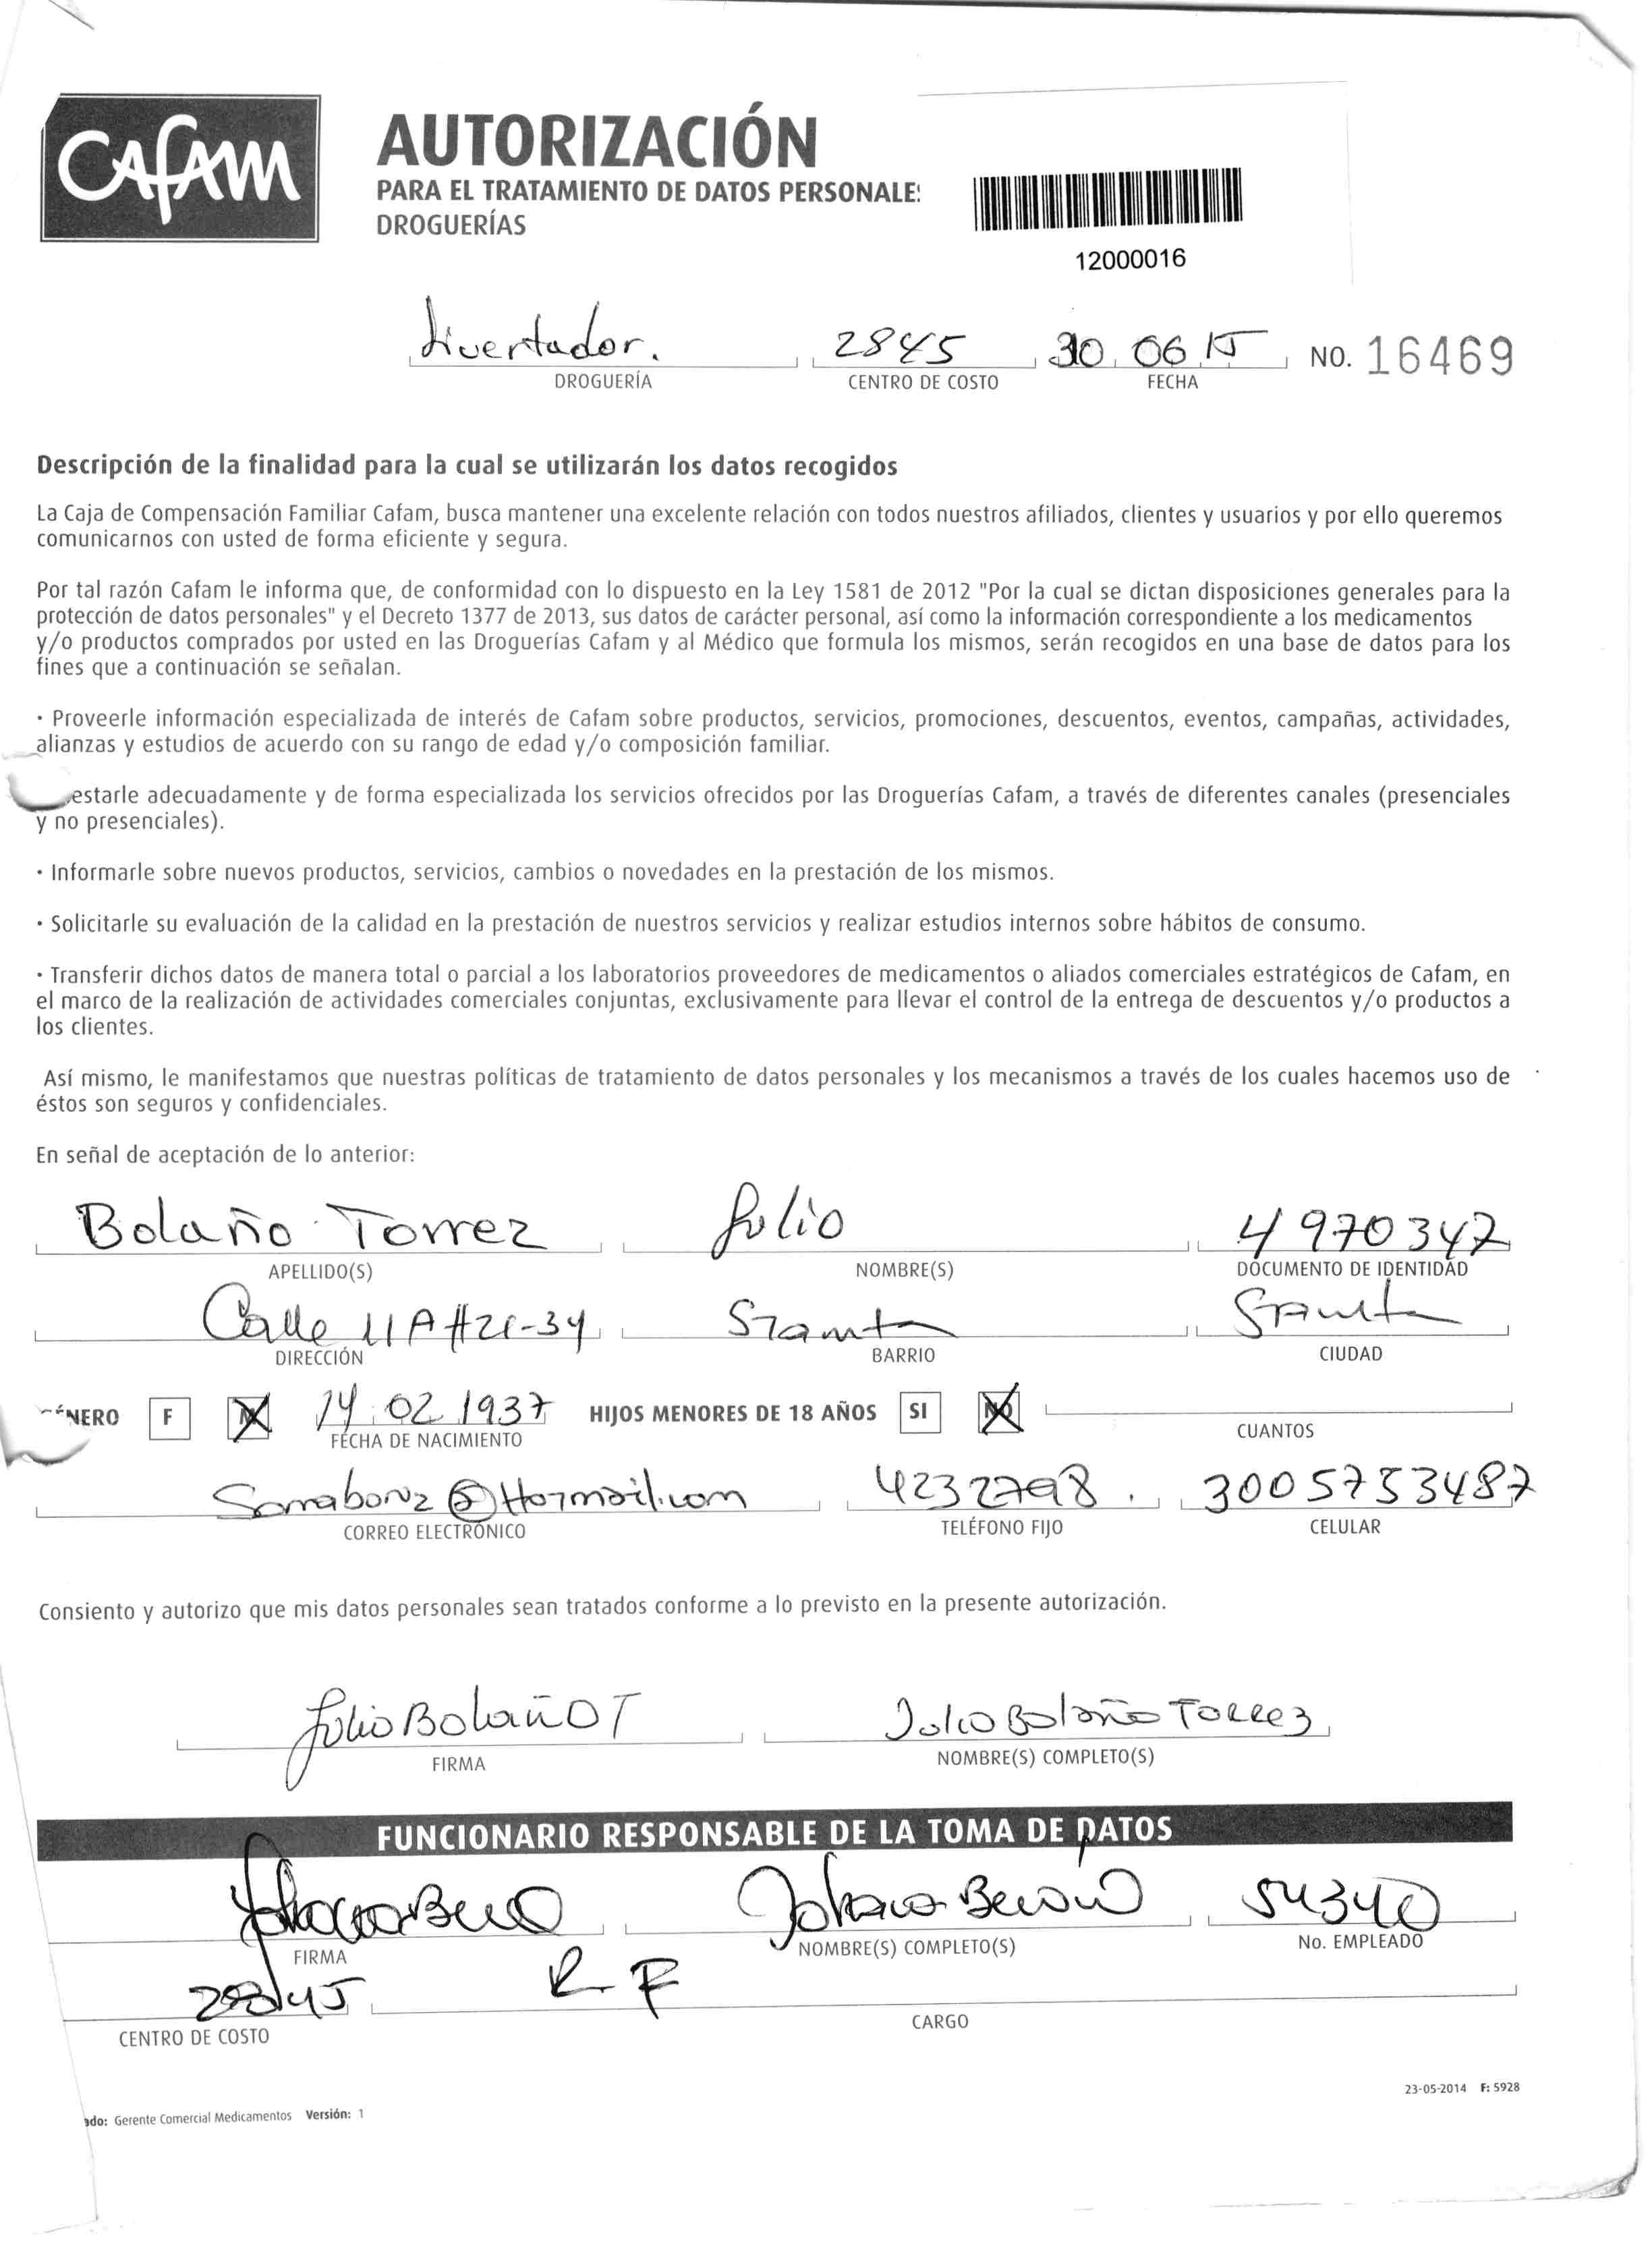 CAFAM
AUTORIZACIÓN
PARA EL TRATAMIENTO DE DATOS PERSONALES
DROGUERÍAS
12000016
Livertador. 2845 30 06 15 NO. 16469
DROGUERÍA CENTRO DE COSTO FECHA
Descripción de la finalidad para la cual se utilizarán los datos recogidos
La Caja de Compensación Familiar Cafam, busca mantener una excelente relación con todos nuestros afiliados, clientes y usuarios y por ello queremos
comunicarnos con usted de forma eficiente y segura.
Por tal razón Cafam le informa que, de conformidad con lo dispuesto en la Ley 1581 de 2012 "Por la cual se dictan disposiciones generales para la
protección de datos personales" y el Decreto 1377 de 2013, sus datos de carácter personal, así como la información correspondiente a los medicamentos
y/o productos comprados por usted en las Droguerías Cafam y al Médico que formula los mismos, serán recogidos en una base de datos para los
fines que a continuación se señalan.
· Proveerle información especializada de interés de Cafam sobre productos, servicios, promociones, descuentos, eventos, campañas, actividades,
alianzas y estudios de acuerdo con su rango de edad y/o composición familiar.
estarle adecuadamente y de forma especializada los servicios ofrecidos por las Droguerías Cafam, a través de diferentes canales (presenciales
y no presenciales).
· Informarle sobre nuevos productos, servicios, cambios o novedades en la prestación de los mismos.
· Solicitarle su evaluación de la calidad en la prestación de nuestros servicios y realizar estudios internos sobre hábitos de consumo.
· Transferir dichos datos de manera total o parcial a los laboratorios proveedores de medicamentos o aliados comerciales estratégicos de Cafam, en
el marco de la realización de actividades comerciales conjuntas, exclusivamente para llevar el control de la entrega de descuentos y/o productos a
los clientes.
Así mismo, le manifestamos que nuestras políticas de tratamiento de datos personales y los mecanismos a través de los cuales hacemos uso de
éstos son seguros y confidenciales.
En señal de aceptación de lo anterior:
Bolaño Torrez Julio 4970347
APELLIDO(S) NOMBRE(S) DOCUMENTO DE IDENTIDAD
Calle 11A #21-34 Stamta Stamta
DIRECCIÓN BARRIO CIUDAD
GÉNERO F M 14 02 1937 HIJOS MENORES DE 18 AÑOS SI NO
FECHA DE NACIMIENTO CUANTOS
@Hotmail.com 4232798 3005753487
CORREO ELECTRÓNICO TELÉFONO FIJO CELULAR
Consiento y autorizo que mis datos personales sean tratados conforme a lo previsto en la presente autorización.
Julio Bolaño T Julio Bolaño Torrez
FIRMA NOMBRE(S) COMPLETO(S)
FUNCIONARIO RESPONSABLE DE LA TOMA DE DATOS
Johana 54340
FIRMA NOMBRE(S) COMPLETO(S) No. EMPLEADO
R F
CENTRO DE COSTO CARGO
23-05-2014 F: 5928
ado: Gerente Comercial Medicamentos Versión: 1